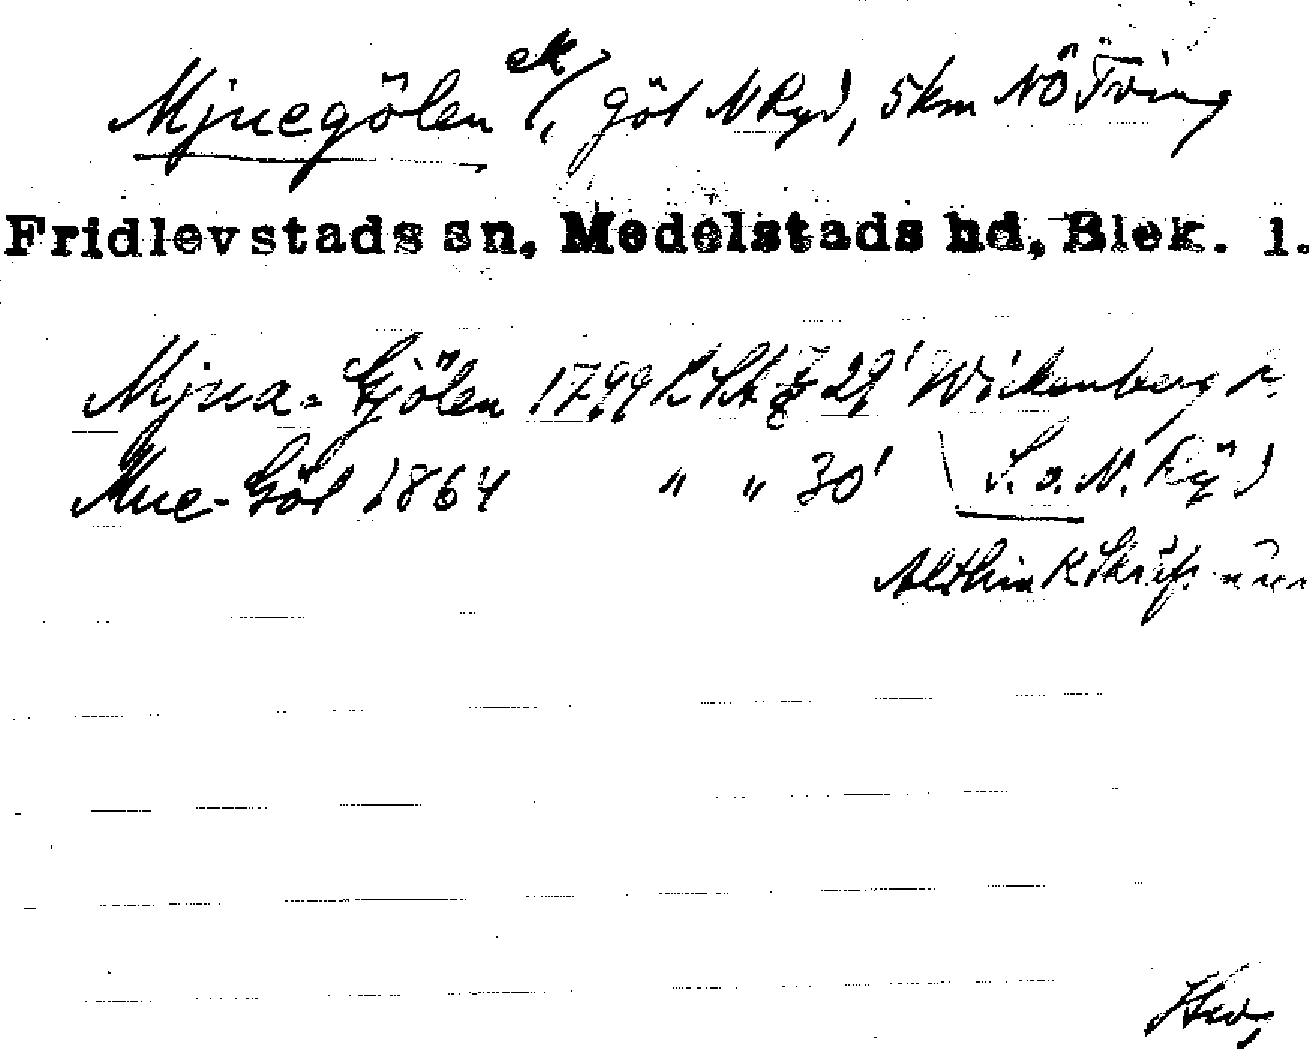 Mjuegölen ek/, göl N Ryd, 5 km NÖ Tving
Fridlevstads sn, Medelstads hd, Blek. l.
Mjua-Gjölen 1799 LSA 29' Wickenberg
Mue-Göl 1864 " " 30' S. o. N. Ryd
Althin K Skräfs